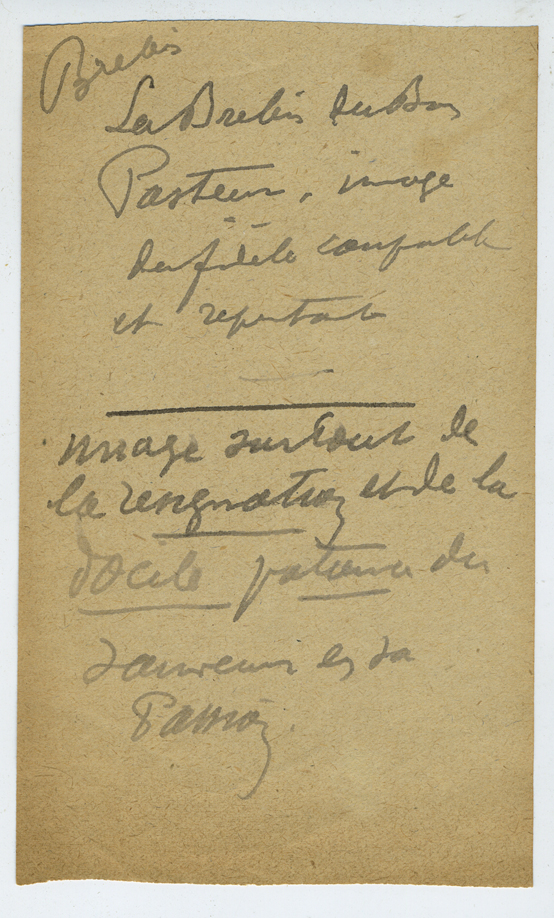 Brebis
La Brebis du Bon
Pasteur, image
du fidèle coupable
et repentant
image surtout de
la resignation et de la
docile patience du
Sauveur en sa
Passion.